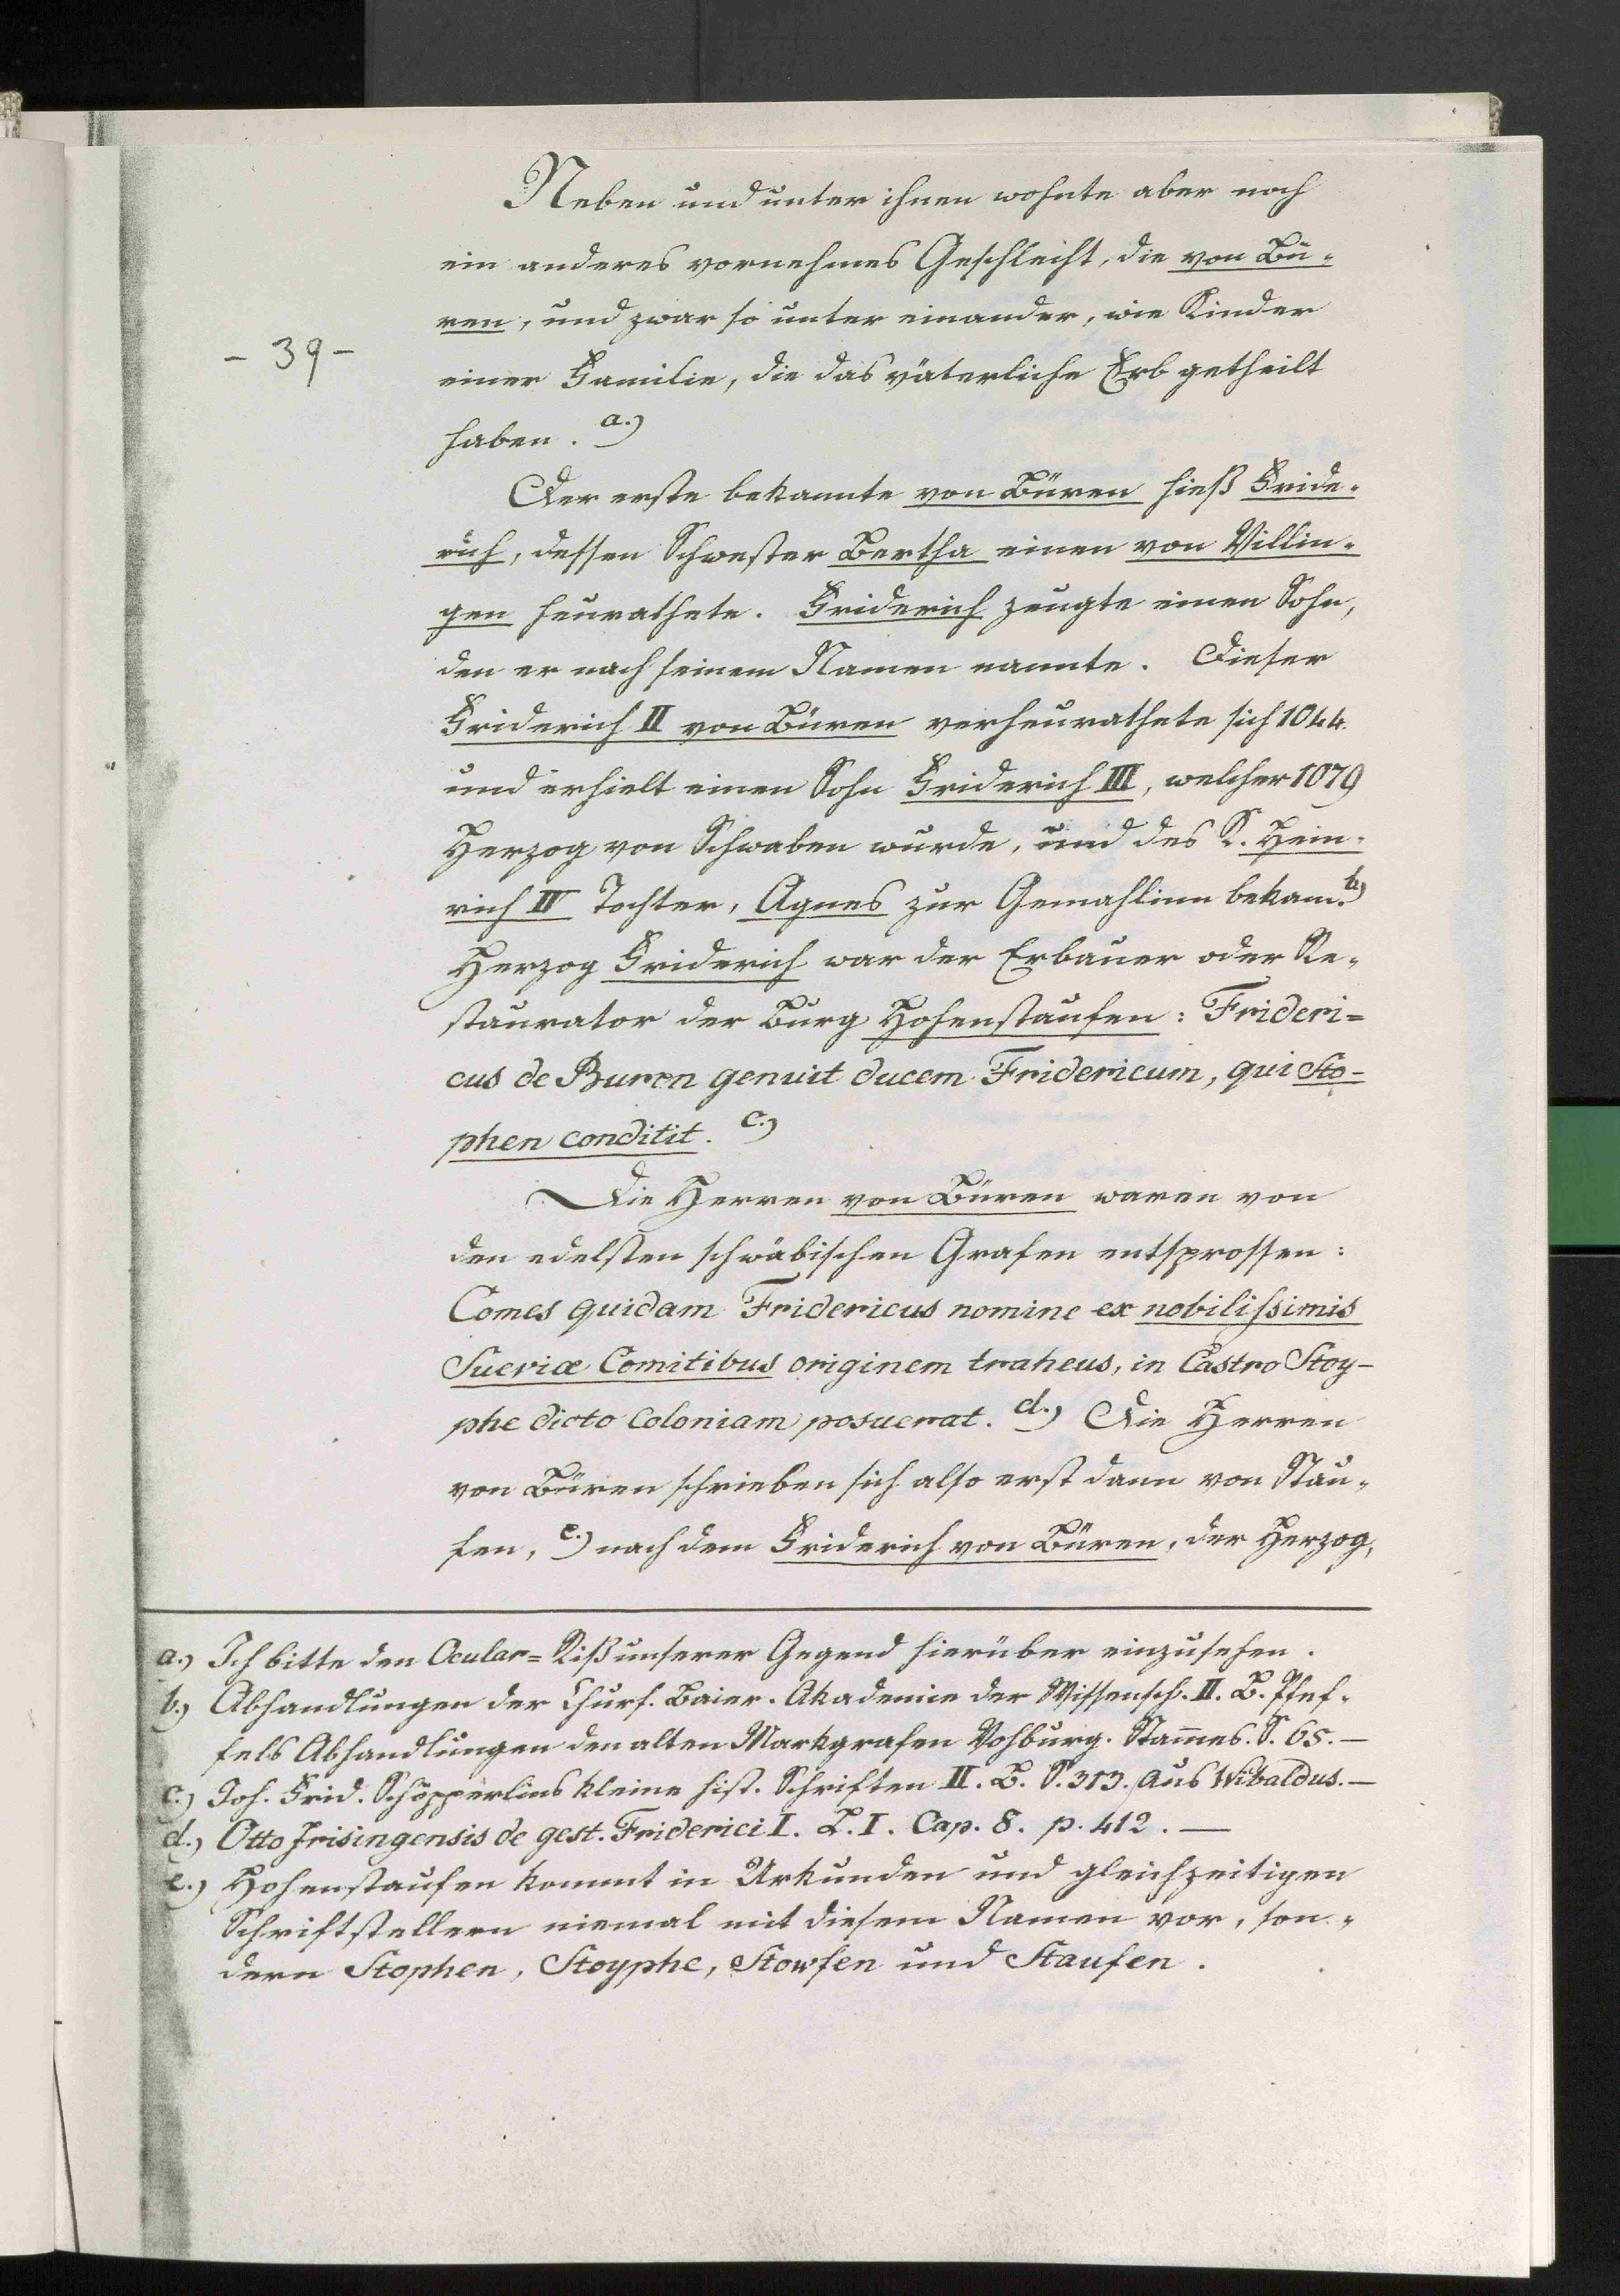 Neben und unter ihnen wohnte aber noch
ein anderes vornehmes Geschlecht, die von Bü-
ren, und zwar so unter einander, wie Kinder
- 39 -
einer Familie, die das väterliche Erb getheilt
haben. a.)
Der erste bekannte von Büren hieß Fride-
rich, dessen Schwester Bertha einen von Villin-
gen heurathete. Friderich zeugte einen Sohn,
den er nach seinem Namen nannte. Dieser
Friderich II von Büren verheurathete sich 1044.
und erhielt einen Sohn Friderich III, welcher 1079
Herzog von Schwaben wurde, und des K. Hein-
rich IV Tochter, Agnes zur Gemahlinn bekam. b.)
Herzog Friderich war der Erbauer oder Re-
staurator der Burg Hohenstaufen: Frideri=
cus de Buren genuit ducem Fridericum, qui Sto-
phen conditit. c.)
Die Herren von Büren waren von
den edelsten schwäbischen Grafen entsprossen:
Comes quidam Fridericus nomine ex nobilissimis
Sueviæ Comitibus originem traheus, in Castro Stoy-
phe dicto Coloniam posuerat. d.) Die Herren
von Büren schrieben sich also erst dann von Stau-
fen, e.) nach dem Friderich von Büren, der Herzog,
a.) Ich bitte den Ocular= Riß unserer Gegend hierüber einzusehen.
b.) Abhandlungen der Churf. Baier. Akademie der Wissensch. II. B. Pfef-
fels Abhandlungen den alten Markgrafen Vohburg. Stam̄es. S. 65. —
c.) Joh. Frid. Schöpperlins kleine hist. Schriften II. B. S. 313. Aus Wibaldus. —
d.) Otto Frisingensis de gest. Friderici I. L. I. Cap. 8. p. 412. —
e.) Hohenstaufen kommt in Urkunden und gleichzeitigen
Schriftstellern niemal mit diesem Namen vor, son-
dern Stophen, Stoyphe, Stowfen und Staufen.